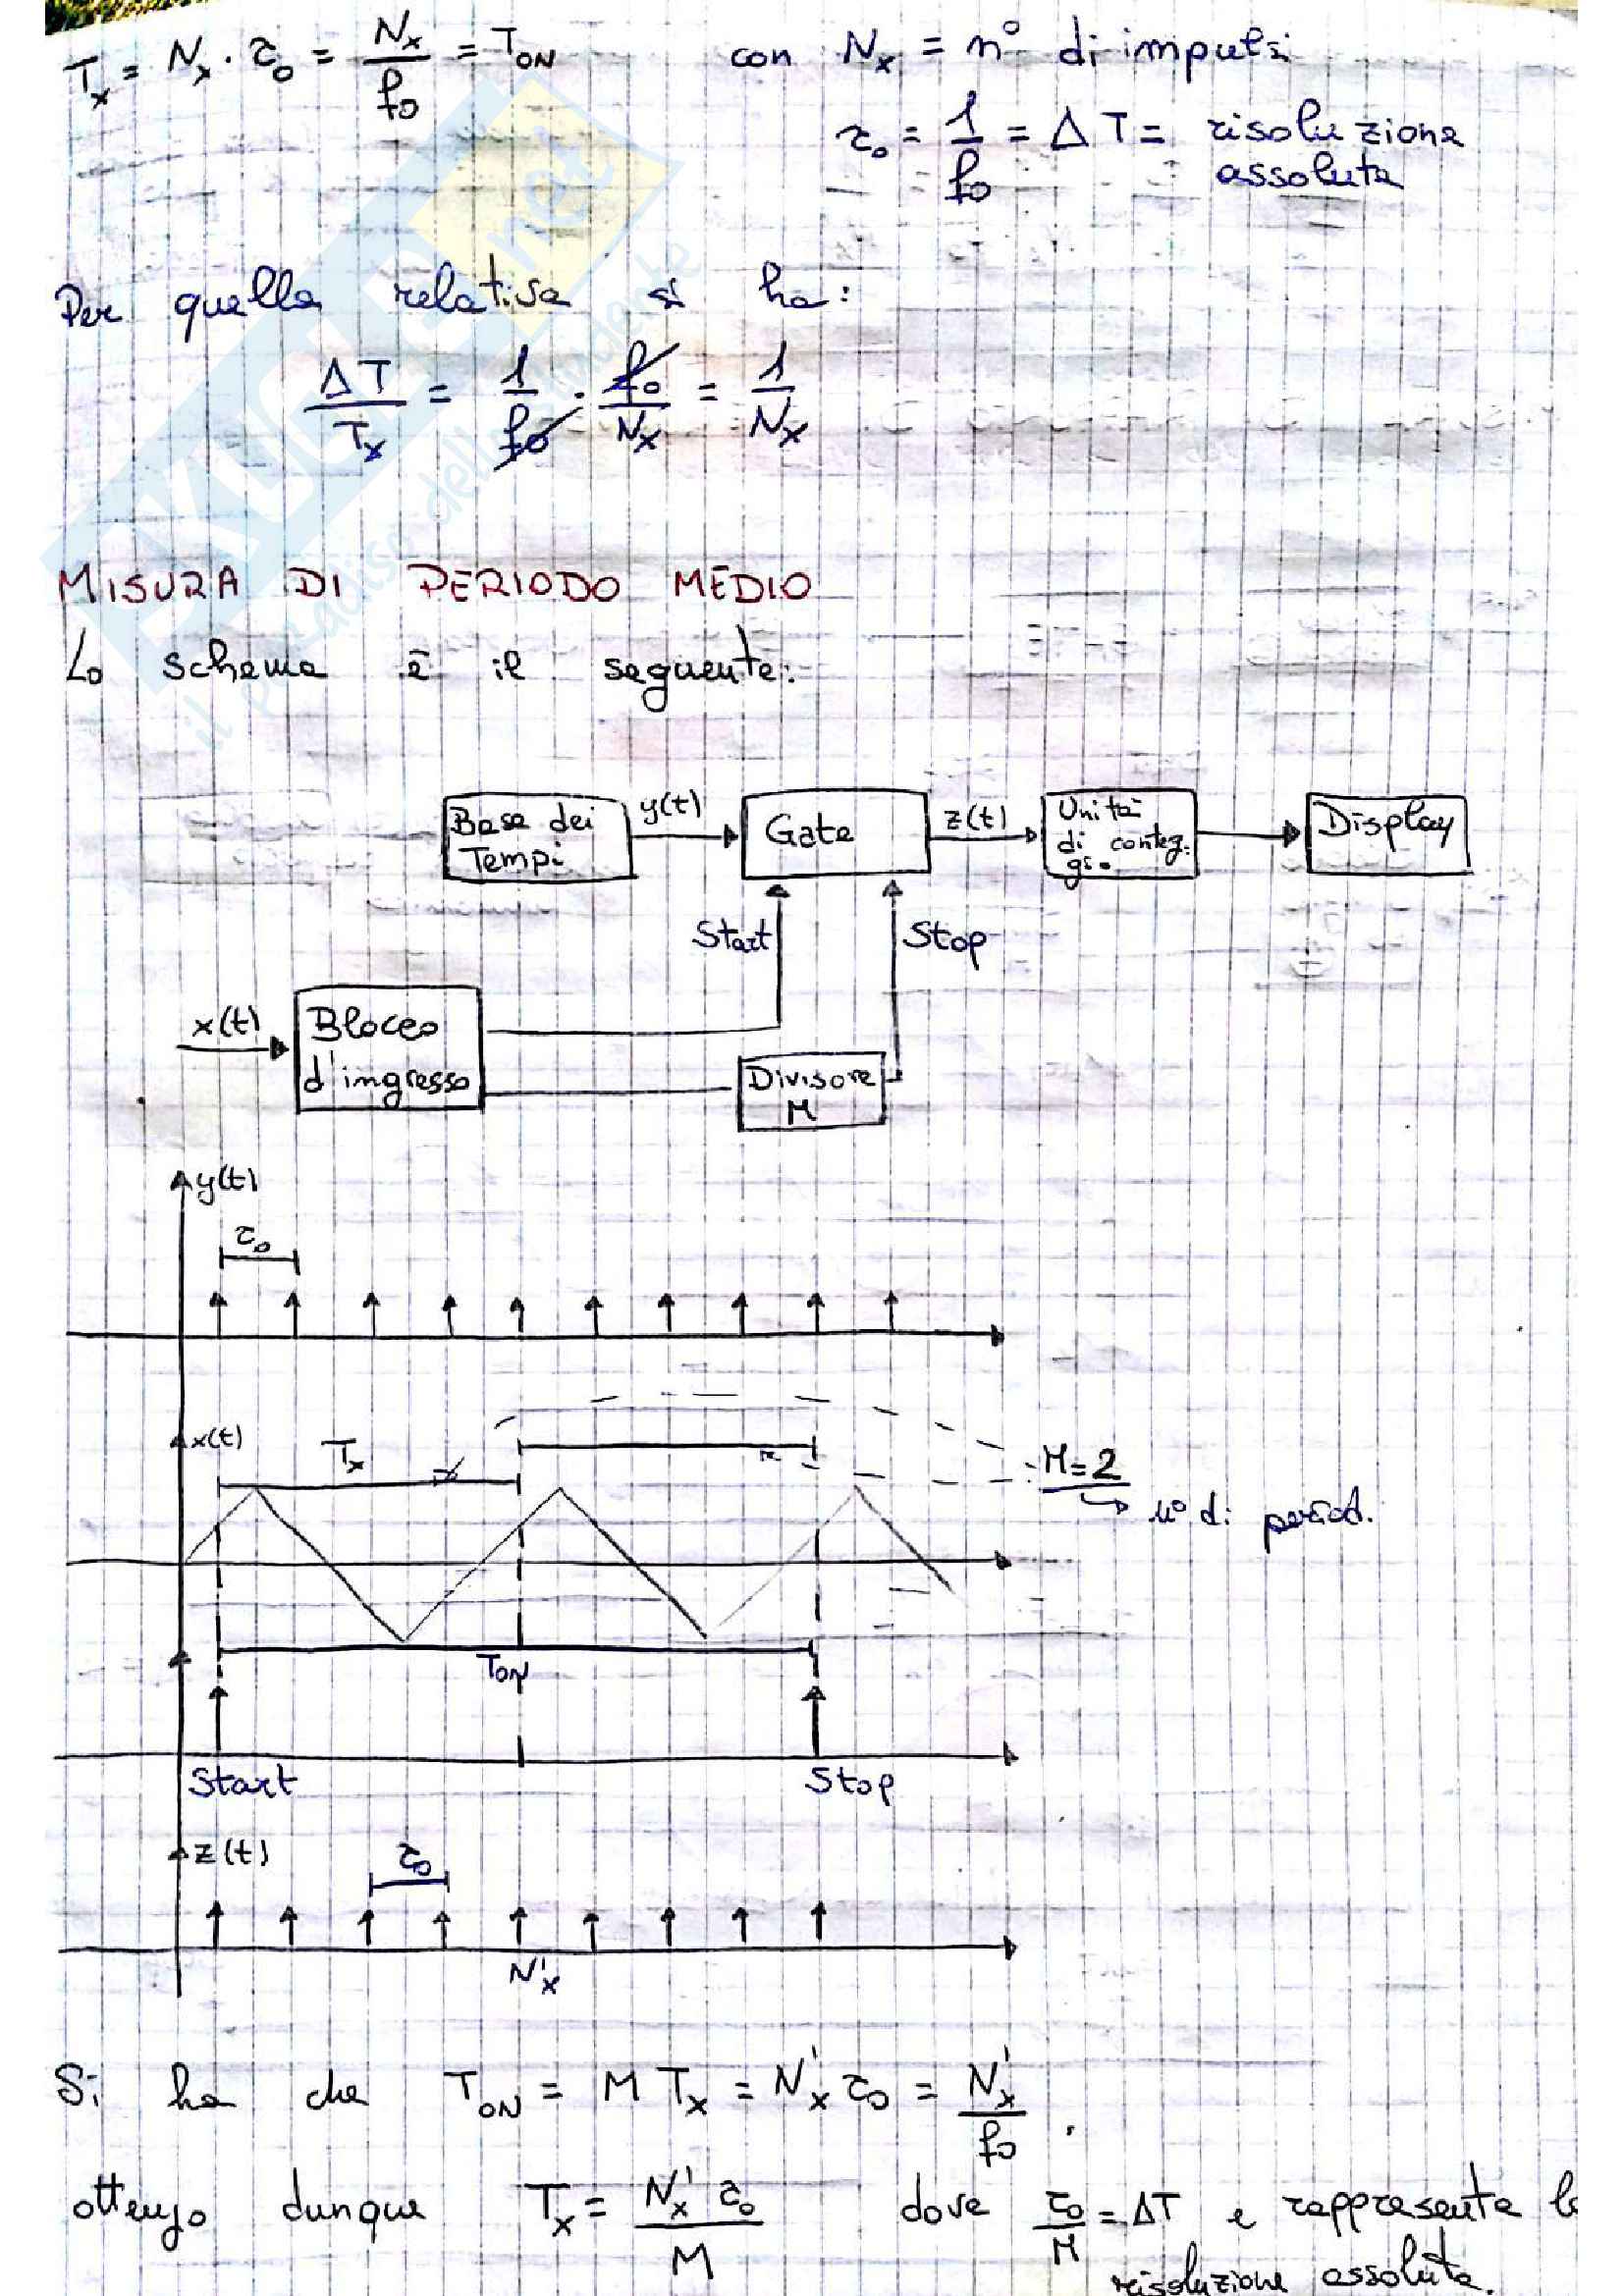 Tx = Nx · τ0 = Nx/f0 = TON con Nx = n° di impulsi
τ0 = 1/f0 = ΔT = risoluzione
assoluta
Per quella relativa si ha:
ΔT/Tx = 1/f0 · f0/Nx = 1/Nx
MISURA DI PERIODO MEDIO
Lo schema è il seguente:
Base dei
Tempi
y(t)
Gate
z(t)
Unità
di conteg.
gio
Display
Start
Stop
x(t)
Blocco
d'ingresso
Divisore
M
y(t)
τ0
x(t)
Tx
M=2
n° di period.
TON
Start
Stop
z(t)
τ0
N'x
Si ha che TON = M Tx = N'x τ0 = N'x/f0 .
ottengo dunque Tx = N'x τ0/M dove τ0/M = ΔT e rappresenta
risoluzione assoluta.
SKUOLA.net
il paradiso dello studente